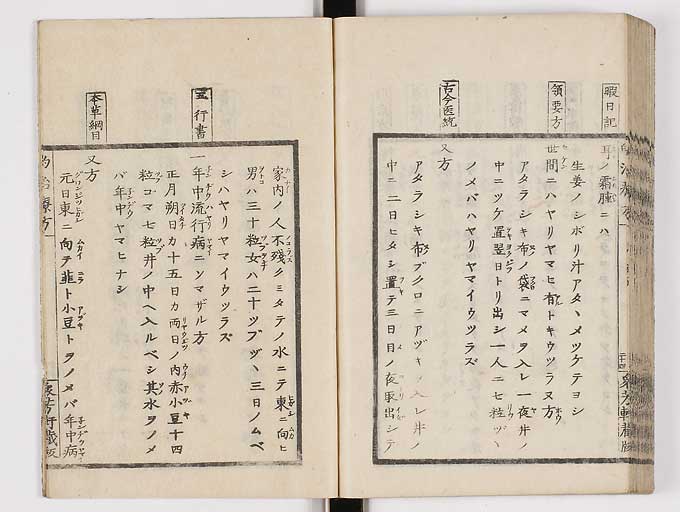 暇日記
耳ノ霜腫ニハ
生姜ノシボリ汁アタヽメツケテヨシ
領要方
世間ニハヤリヤマヒ有トキウツラヌ方
アタラシキ布ノ袋ニマメヲ入レ一夜井ノ
中ニツケ置翌日トリ出シ一人ニ七粒ヅヽ
ノメバハヤリヤマイウツラズ
古今医統
又方
アタラシキ布ブクロニアヅキヲ入レ井ノ
中ニ二日ヒタシ置テ三日目ノ夜取出シテ
家内ノ人不残クミタテノ水ニテ東ニ向ヒ
男ハ三十粒女ハ二十ツブヅヽ三日ノムベ
シハヤリヤマイウツラズ
五行書
一年中流行病ニソマザル方
正月朔日カ十五日カ両日ノ内赤小豆十四
粒ゴマ七粒井ノ中ヘ入ルベシ其水ヲノメ
バ年中ヤマヒナシ
本草綱目
又方
元日東ニ向テ韮ト小豆トヲノメバ年中病